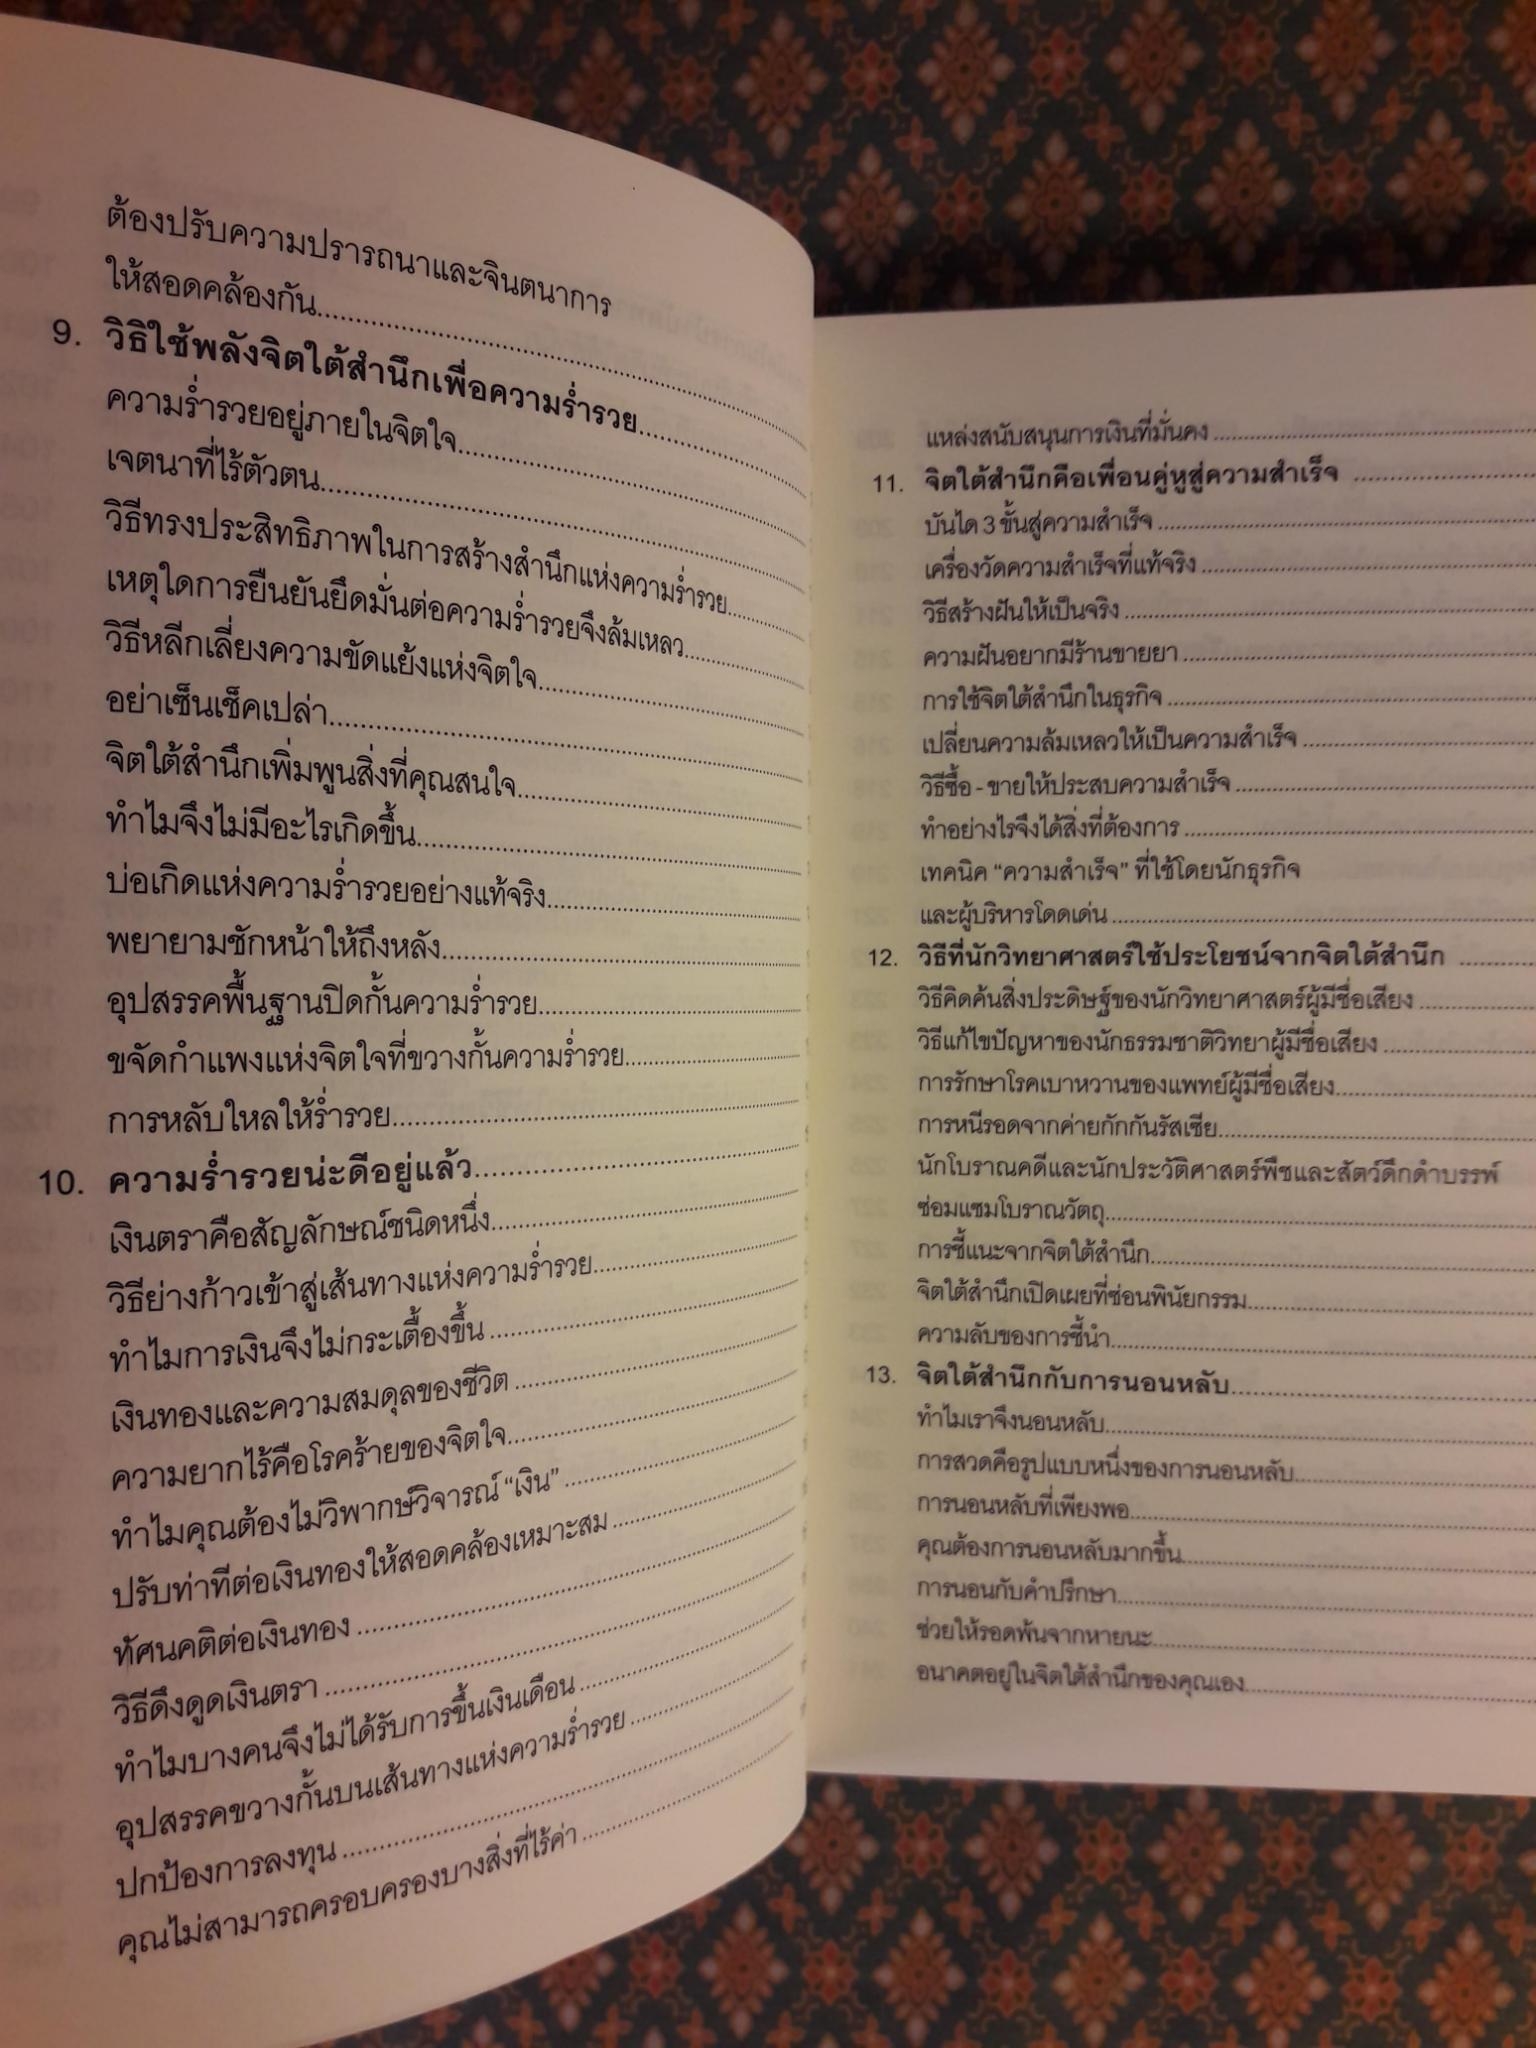 ต้องปรับความปรารถนาและจินตนาการ
ให้สอดคล้องกัน
9. วิธีใช้พลังจิตใต้สำนึกเพื่อความร่ำรวย
ความร่ำรวยอยู่ภายในจิตใจ
เจตนาที่ไร้ตัวตน
วิธีทรงประสิทธิภาพในการสร้างสำนึกแห่งความร่ำรวย
เหตุใดการยืนยันยึดมั่นต่อความร่ำรวยจึงล้มเหลว
วิธีหลีกเลี่ยงความขัดแย้งแห่งจิตใจ
อย่าเซ็นเช็คเปล่า
จิตใต้สำนึกเพิ่มพูนสิ่งที่คุณสนใจ
ทำไมจึงไม่มีอะไรเกิดขึ้น
บ่อเกิดแห่งความร่ำรวยอย่างแท้จริง
พยายามชักหน้าให้ถึงหลัง
อุปสรรคพื้นฐานปิดกั้นความร่ำรวย
ขจัดกำแพงแห่งจิตใจที่ขวางกั้นความร่ำรวย
การหลับใหลให้ร่ำรวย
10. ความร่ำรวยน่ะดีอยู่แล้ว
เงินตราคือสัญลักษณ์ชนิดหนึ่ง
วิธีย่างก้าวเข้าสู่เส้นทางแห่งความร่ำรวย
ทำไมการเงินจึงไม่กระเตื้องขึ้น
เงินทองและความสมดุลของชีวิต
ความยากไร้คือโรคร้ายของจิตใจ
ทำไมคุณต้องไม่วิพากษ์วิจารณ์ “เงิน”
ปรับท่าทีต่อเงินทองให้สอดคล้องเหมาะสม
ทัศนคติต่อเงินทอง
วิธีดึงดูดเงินตรา
ทำไมบางคนจึงไม่ได้รับการขึ้นเงินเดือน
อุปสรรคขวางกั้นบนเส้นทางแห่งความร่ำรวย
ปกป้องการลงทุน
คุณไม่สามารถครอบครองบางสิ่งที่ไร้ค่า
แหล่งสนับสนุนการเงินที่มั่นคง
11. จิตใต้สำนึกคือเพื่อนคู่หูสู่ความสำเร็จ
บันได 3 ขั้นสู่ความสำเร็จ
เครื่องวัดความสำเร็จที่แท้จริง
วิธีสร้างฝันให้เป็นจริง
ความฝันอยากมีร้านขายยา
การใช้จิตใต้สำนึกในธุรกิจ
เปลี่ยนความล้มเหลวให้เป็นความสำเร็จ
วิธีซื้อ - ขายให้ประสบความสำเร็จ
ทำอย่างไรจึงได้สิ่งที่ต้องการ
เทคนิค “ความสำเร็จ” ที่ใช้โดยนักธุรกิจ
และผู้บริหารโดดเด่น
12. วิธีที่นักวิทยาศาสตร์ใช้ประโยชน์จากจิตใต้สำนึก
วิธีคิดค้นสิ่งประดิษฐ์ของนักวิทยาศาสตร์ผู้มีชื่อเสียง
วิธีแก้ไขปัญหาของนักธรรมชาติวิทยาผู้มีชื่อเสียง
การรักษาโรคเบาหวานของแพทย์ผู้มีชื่อเสียง
การหนีรอดจากค่ายกักกันรัสเซีย
นักโบราณคดีและนักประวัติศาสตร์พืชและสัตว์ดึกดำบรรพ์
ซ่อมแซมโบราณวัตถุ
การชี้แนะจากจิตใต้สำนึก
จิตใต้สำนึกเปิดเผยที่ซ่อนพินัยกรรม
ความลับของการชี้นำ
13. จิตใต้สำนึกกับการนอนหลับ
ทำไมเราจึงนอนหลับ
การสวดคือรูปแบบหนึ่งของการนอนหลับ
การนอนหลับที่เพียงพอ
คุณต้องการนอนหลับมากขึ้น
การนอนกับคำปรึกษา
ช่วยให้รอดพ้นจากหายนะ
อนาคตอยู่ในจิตใต้สำนึกของคุณเอง